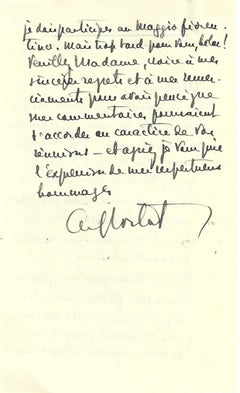 je dois participer au Maggio fioren-
tino. Mais trop tard pour vous, hélas !
Veuillez Madame, croire à mes
sincères regrets et à mes remer-
ciements pour avoir pensé que
mes commentaires pouvaient
s'accorder au caractère de vos
réunions — et agréer je vous prie
l'expression de mes respectueux
hommages